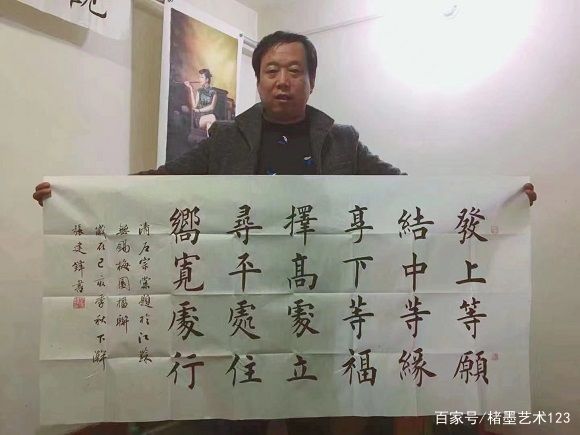 發上等願
結中等緣
享下等福
擇髙處立
尋平處住
嚮寬處行
清左宗棠題於江蘇
無錫梅園楹聯
歲在己亥季秋下澣
張建鋒書
百家号/楮墨艺术123